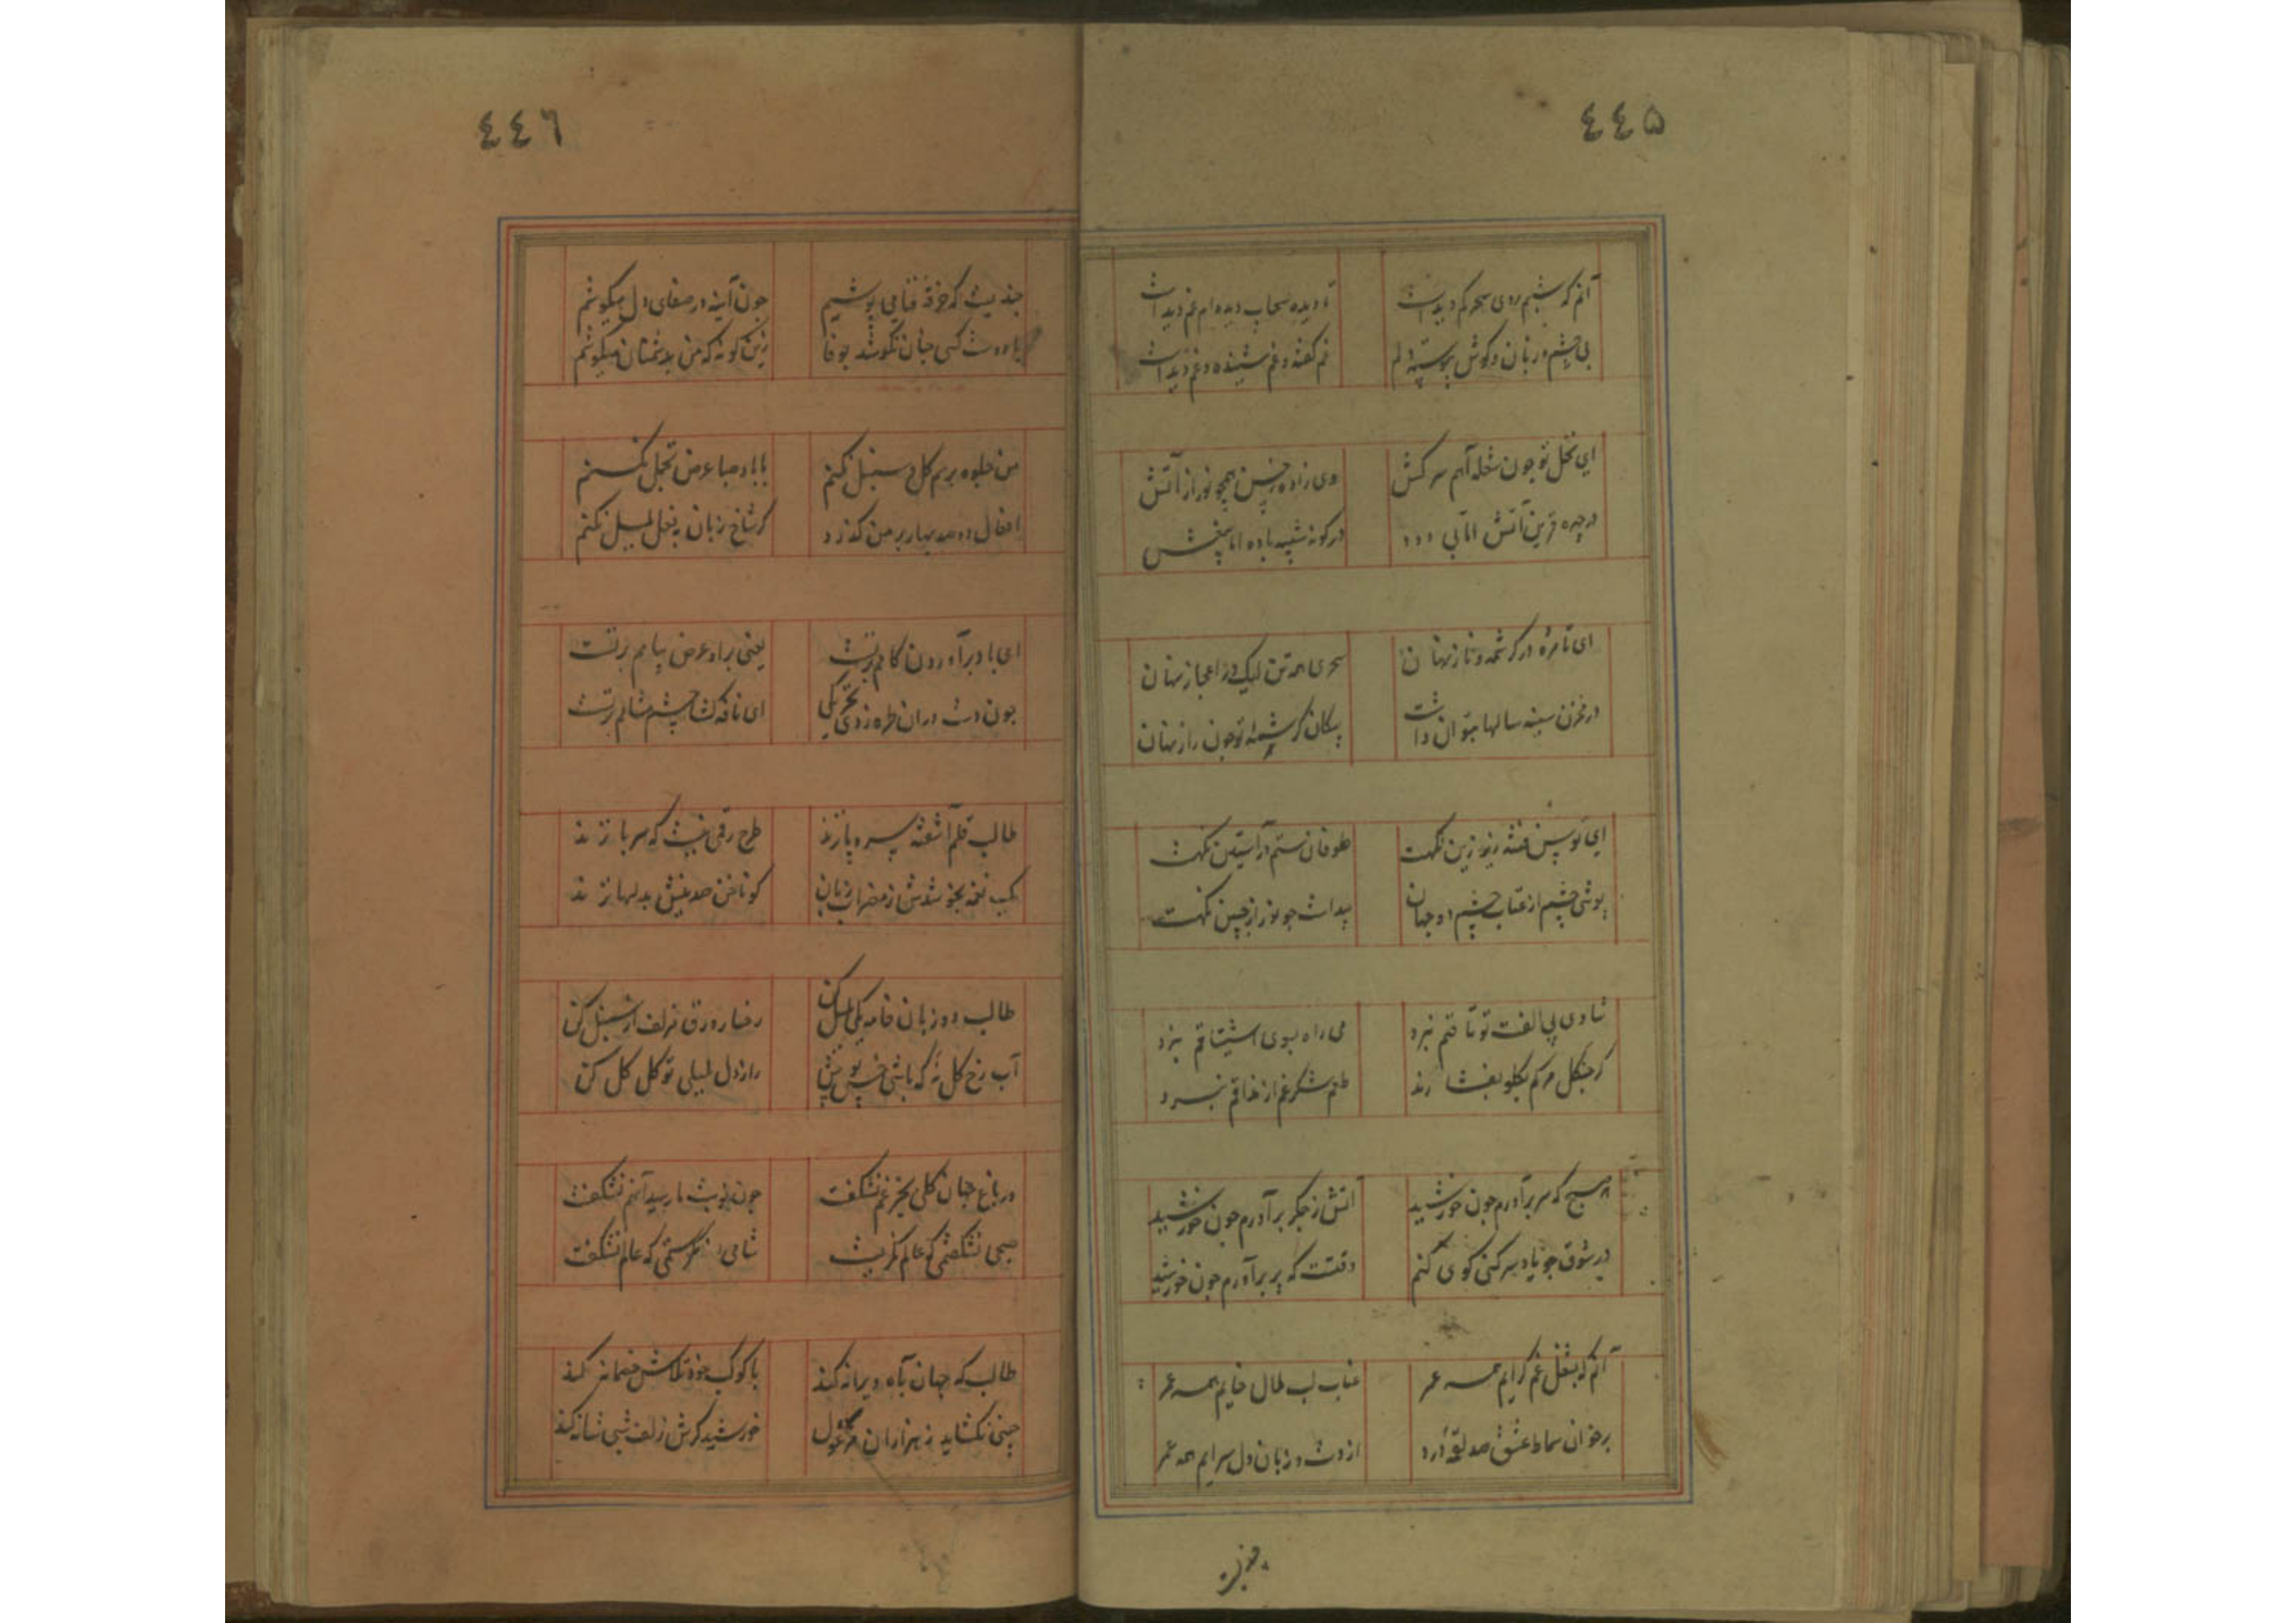 ٤٤۵
آنم که شبم روی سحر کم دیدست
تا دیده سحاب دیده ام نم دیدست
بی چشم و زبان و گوش پیوسته دلم
غم گفته و غم شنیده و غم دیدست
ای نخل تو چون شعله آهم سرکش
وی زاده حسن همچو نور از آتش
در چهره قرین آتش اما بی دود
در گونه شبیه باده اما بیغش
ای نامزه در کرشمه و ناز نهان
سحری همه تن لیک در اعجاز نهان
در مخزن سینه سالها بتوان داشت
پیکان کرشمه تو چون راز نهان
ای توسن فتنه زیر زین نگهت
طوفان ستم در آستین نگهت
پوشی چشم از عتاب چشم دو جهان
پیداست چو نور از جبین نگهت
شادی پی الفت تو تا قم نبرد
می راه بسوی اشتیاقم نبرد
گر جنگل مرگم بگلو بفشارند
طعم شکر غم از مذاقم نبرد
هر صبح که سر برآورم چون خورشید
آتش ز جگر برآورم چون خورشید
در شوق چو یاد سرکنی کوی کنم
وقتست که پر برآورم چون خورشید
آنم که بشغل غم گرایم همه عمر
عناب لب ملال خایم همه عمر
بر خوان سماط عشق صد لقمه درد
از دست و زبان دل سرایم همه عمر
چندیست
٤٤٦
چندیست که خرقه فنا می پوشیم
چون آینه در صفای دل میکوشم
با دوست کسی جان نکوشد بوفا
زین گونه که من بدشمنان میکوشم
من جلوه برم گل و سنبل نکنم
با باد صبا عرض تجمل نکنم
اطفال دو صد بهار بر من گذرد
کز شاخ زبان به نعل بلبل نکنم
ای باد برآوردن کامم بر تست
یعنی براو عرض پیامم بر تست
چون دست در ان طره زدی تحریکی
ای نافه گشا چشم مشامم بر تست
طالب قلم آشفته سر و پا نزند
طرح رقمی نیست که سر با نزند
یک نغمه نجوشدش ز مضراب زبان
کو ناخن صد نیش بدلها نزند
طالب دو زبان خامه یکی بلبل کن
رخسار ورق ز زلف از سنبل کن
آب رخ گل نه که باشی خس پوش
راز دل بلبلی تو گل گل کن
در باغ جهان گلی بجز غم نشکفت
چون نوبت ما رسید آنهم نشکفت
صبحی نشکفتیم که عالم نگریست
شامی نگرستیم که عالم نشکفت
طالب که جهان بآه ویرانه کند
با کوکب خود تلاش خصمانه کند
چینی نگشاید ز هزاران مرغول
خورشید گرش زلف شبی شانه کند